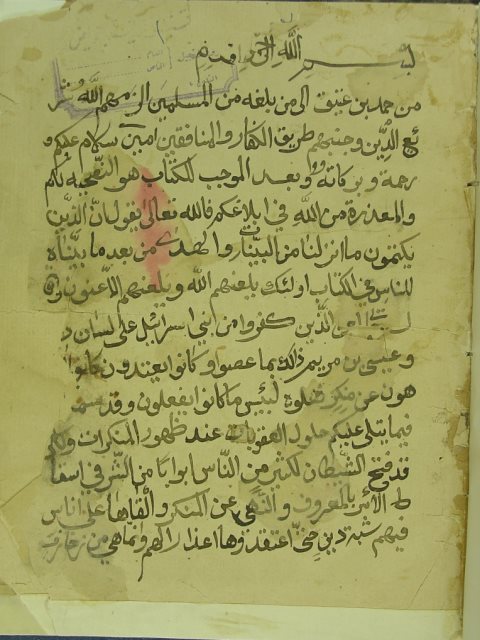 بسم الله الرحمن
من حمد بن عتيق الى من بلغه من المسلمين الزمهم الله شر
ئع الدين وجنبهم طريق الكفار والمنافقين امين سلام عليكم و
رحمة وبركاته وبعد الموجب للكتاب هو النصيحة لكم
والمعذرة من الله في ابلاغكم فالله تعالى يقول ان الذين
يكتمون ما انزلنا من البينات والهدى من بعد ما بيناه
للناس في الكتاب اولئك يلعنهم الله ويلعنهم اللاعنون
لعن الذين كفروا من بني اسرائيل على لسان د
وعيسى بن مريم ذلك بما عصوا وكانوا يعتدون كانوا
هون عن منكر فعلوه لبئس ما كانوا يفعلون وقد
فيما يتلى عليكم حلول العقوبات عند ظهور المنكرات
قد فتح الشيطان لكثير من الناس ابوابا من الشر في اسقا
ط الامر بالمعروف والنهي عن المنكر والقاها على اناس
فيهم شبة دين حتى اعتقدوها اعذارا لهم وانما هي من زخارفه